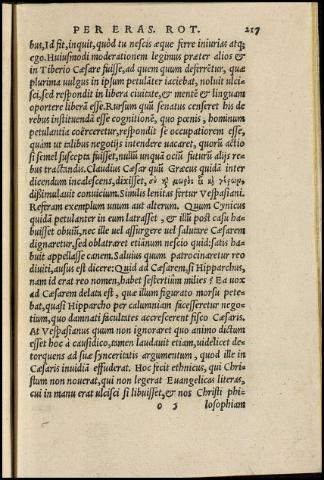 PER ERAS. ROT. 217
bus, Id fit, inquit, quòd tu nescis æque firre iniurias atq;
ego. Huiusmodi moderationem legimus præter alios &
in Tiberio Cæsare fuisse, ad quem quum deferrẽtur, quæ
plurima vulgus in ipsum petulãter iaciebat, noluit ulci
sci, sed respondit in libera ciuitate, & mentẽ & linguam
oportere liberã esse. Rursum quũ senatus censeret his de
rebus instituendã esse cognitionẽ, quo pœnis, hominum
petulantia coërceretur, respondit se occupatiorem esse,
quàm ut talibus negotijs intendere uacaret, quorũ actio
si semel suscepta fuisset, nullũ unquã ociũ futurũ alijs re
bus tractandis. Claudius Cæsar quũ Græcus quidã inter
dicendum incalescens, dixisset, σὺ ἦ μωρὸς ὢ ἢ γέρωμ,
dißimulauit conuicium. Similis lenitas fertur Vespasiani.
Referam exemplum unum aut alterum. Quum Cynicus
quidã petulanter in eum latrasset, & illũ post casũ ha-
buisset obuiũ, nec ille uel assurgere uel salutare Cæsarem
dignaretur, sed oblatraret etiãnum nescio quid: satis ha-
buit appellasse canem. Saluius quum patrocinaretur reo
diuiti, ausus est dicere: Quid ad Cæsarem, si Hipparchus,
nam id erat reo nomen, habet sestertiũm milies? Ea uox
ad Cæsarem delata est, quæ illum figurato morsu pete-
bat, quasi Hipparcho per calumniam facesseretur nego-
tium, quo damnati facultates accrescerent fisco Cæsaris.
At Vespasianus quum non ignoraret quo animo dictum
esset hoc à causidico, tamen laudauit etiam, uidelicet de-
torquens ad suæ synceritatis argumentum, quod ille in
Cæsaris inuidiã effuderat. Hoc fecit ethnicus, qui Chri-
stum non nouerat, qui non legerat Euangelicas literas,
cui in manu erat ulcisci si libuisset, & nos Christi phi-
o 5 losophiam